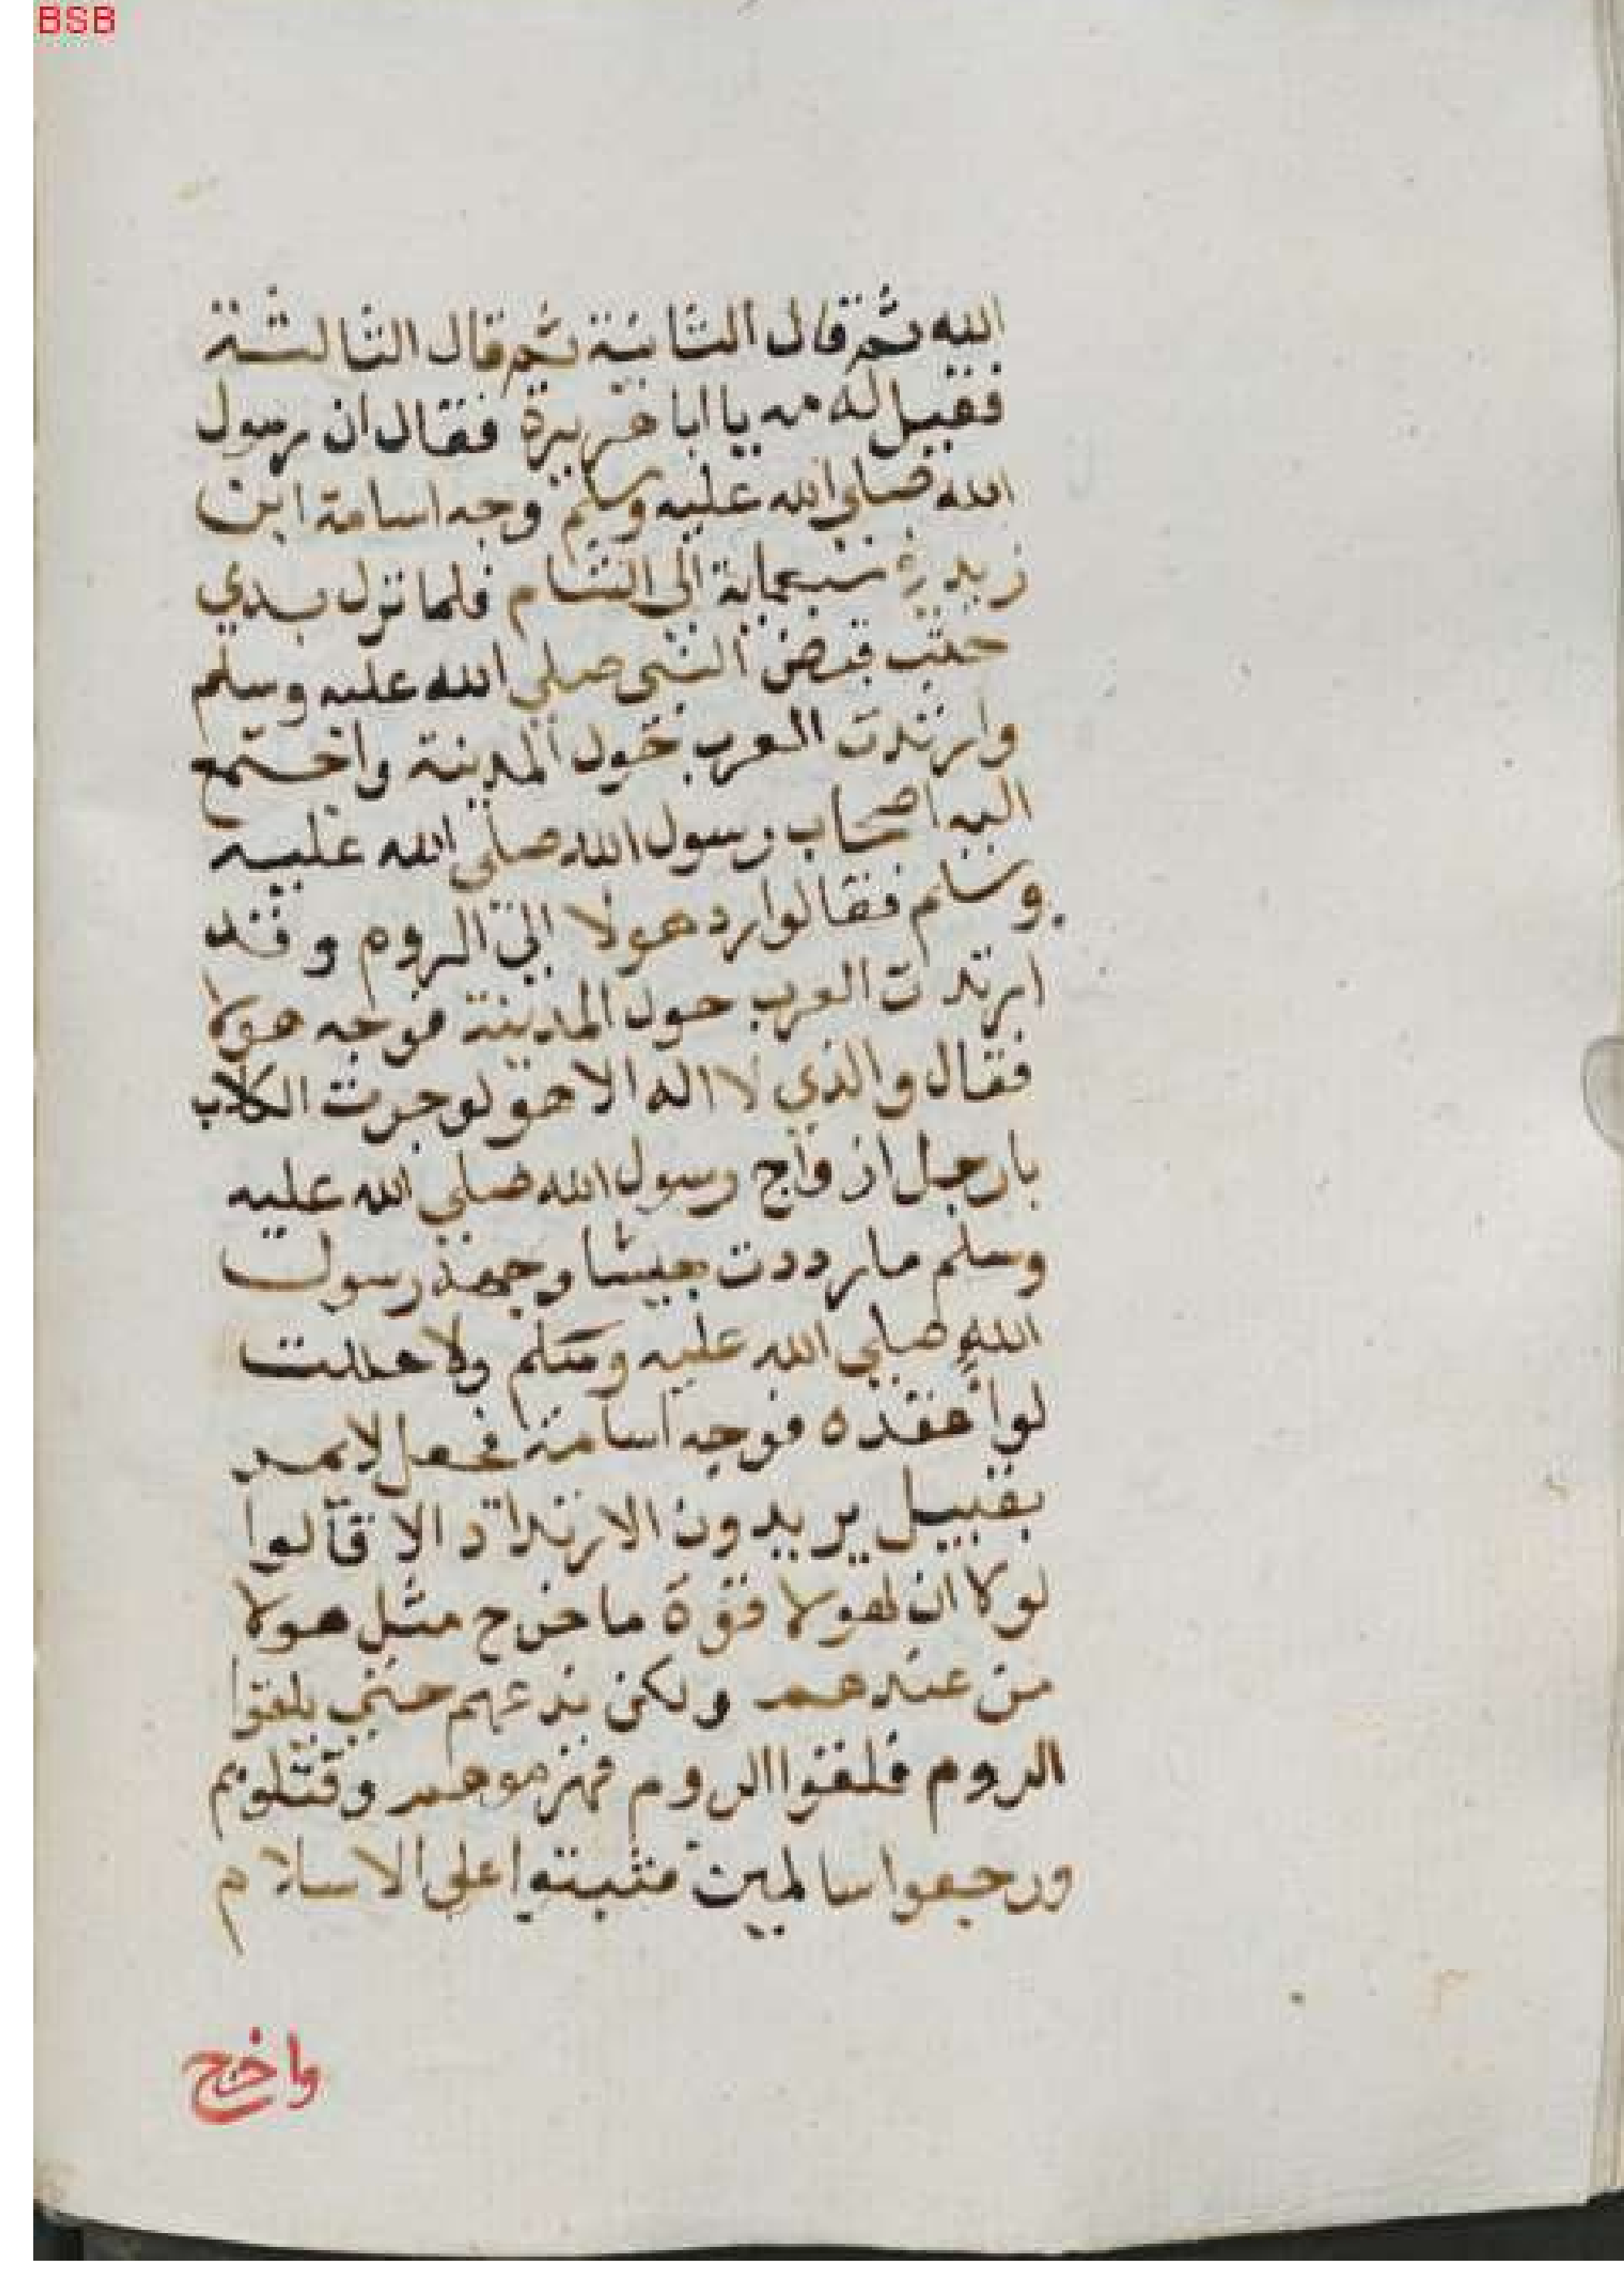 BSB
الله ثم قال الثانية ثم قال الثالثة
فقيل له مه يا ابا هريرة فقال ان رسول
الله صلى الله عليه وسلم وجه اسامة ابن
زيد في سبعماية الى الشام فلما نزل بدي
خشب قبض النبي صلى الله عليه وسلم
وارتدت العرب حول المدينة واجتمع
اليه اصحاب رسول الله صلى الله عليه
وسلم فقالوا رد هولا الى الروم وقد
ارتدت العرب حول المدينة فوجه هولا
فقال والذي لا اله الا هو لو جرت الكلاب
بارجل ازواج رسول الله صلي الله عليه
وسلم ما رددت جيشا وجهه رسول
الله صلي الله عليه وسلم ولا حللت
لوا عقده فوجه اسامة فجعل لا يمر
بقبيل يريدون الارتداد الا قالوا
لولا ان لهولا قوة ما خرج مثل هولا
من عندهم ولكن ندعهم حتي يلقوا
الروم فلقوا الروم فهزموهم وقتلوهم
ورجعوا سالمين فثبتوا على الاسلام
واخرج